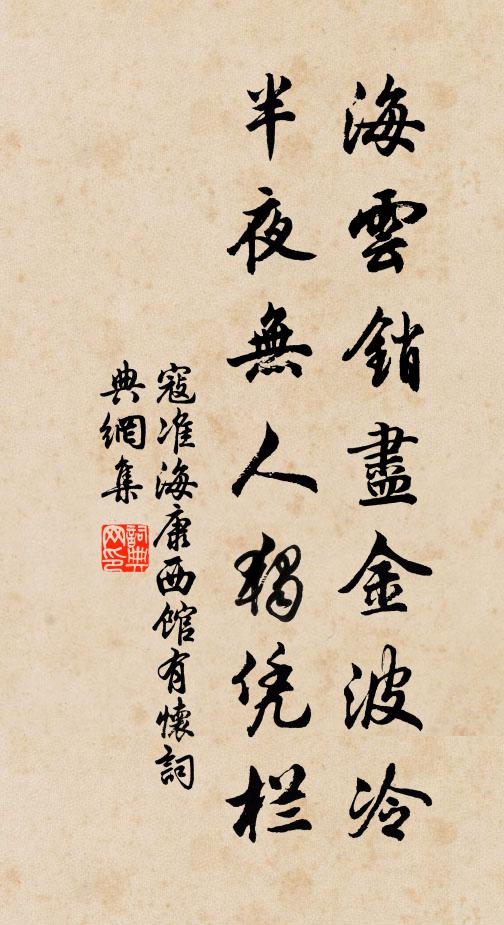 海雲銷盡金波冷
半夜無人獨凭栏
寇准海康西馆有懷詞
典網集
詞典网印